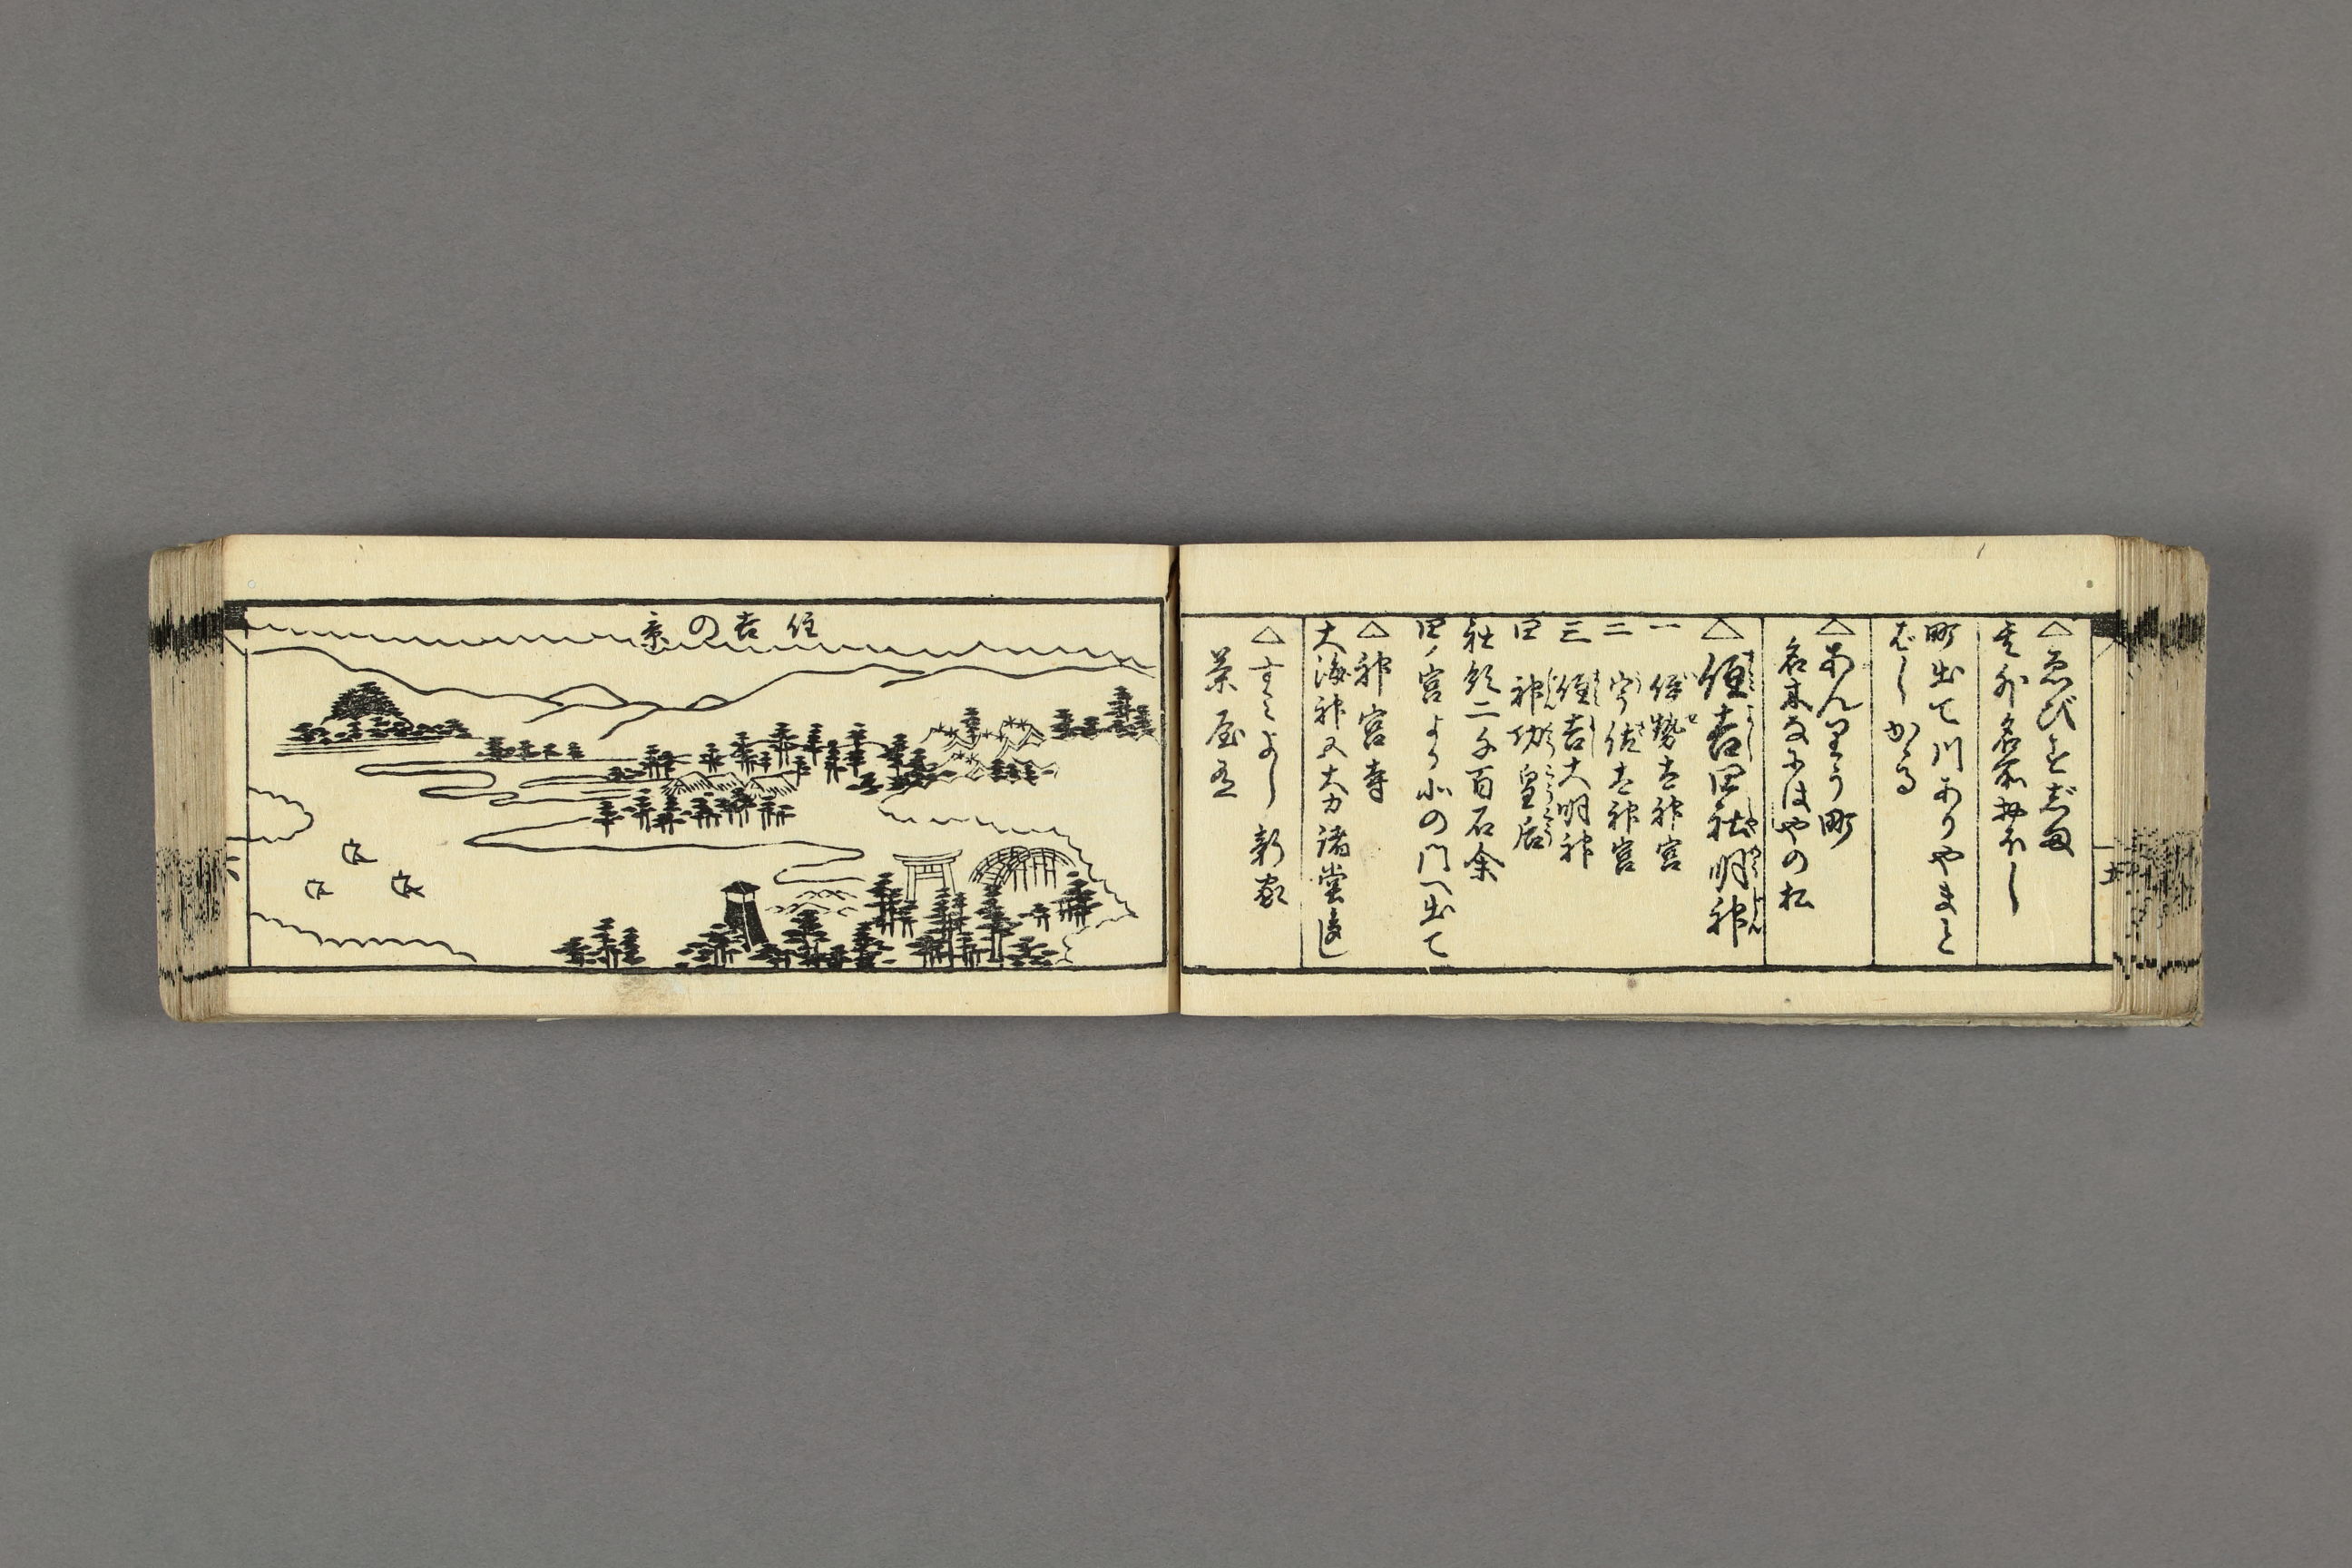 △ゑびすじま
其外名所おほし
町出て川ありやまと
ばしかゝる
△あんりう町
名木なにはやの松
△住吉四社明神
一 伊勢太神宮
二 宇佐太神宮
三 住吉大明神
四 神功皇后
社領二千百石余
四ノ宮より北の門へ出て
△神宮寺
大海神又大力諸堂
△すみよし新家
茶屋有
住吉の景